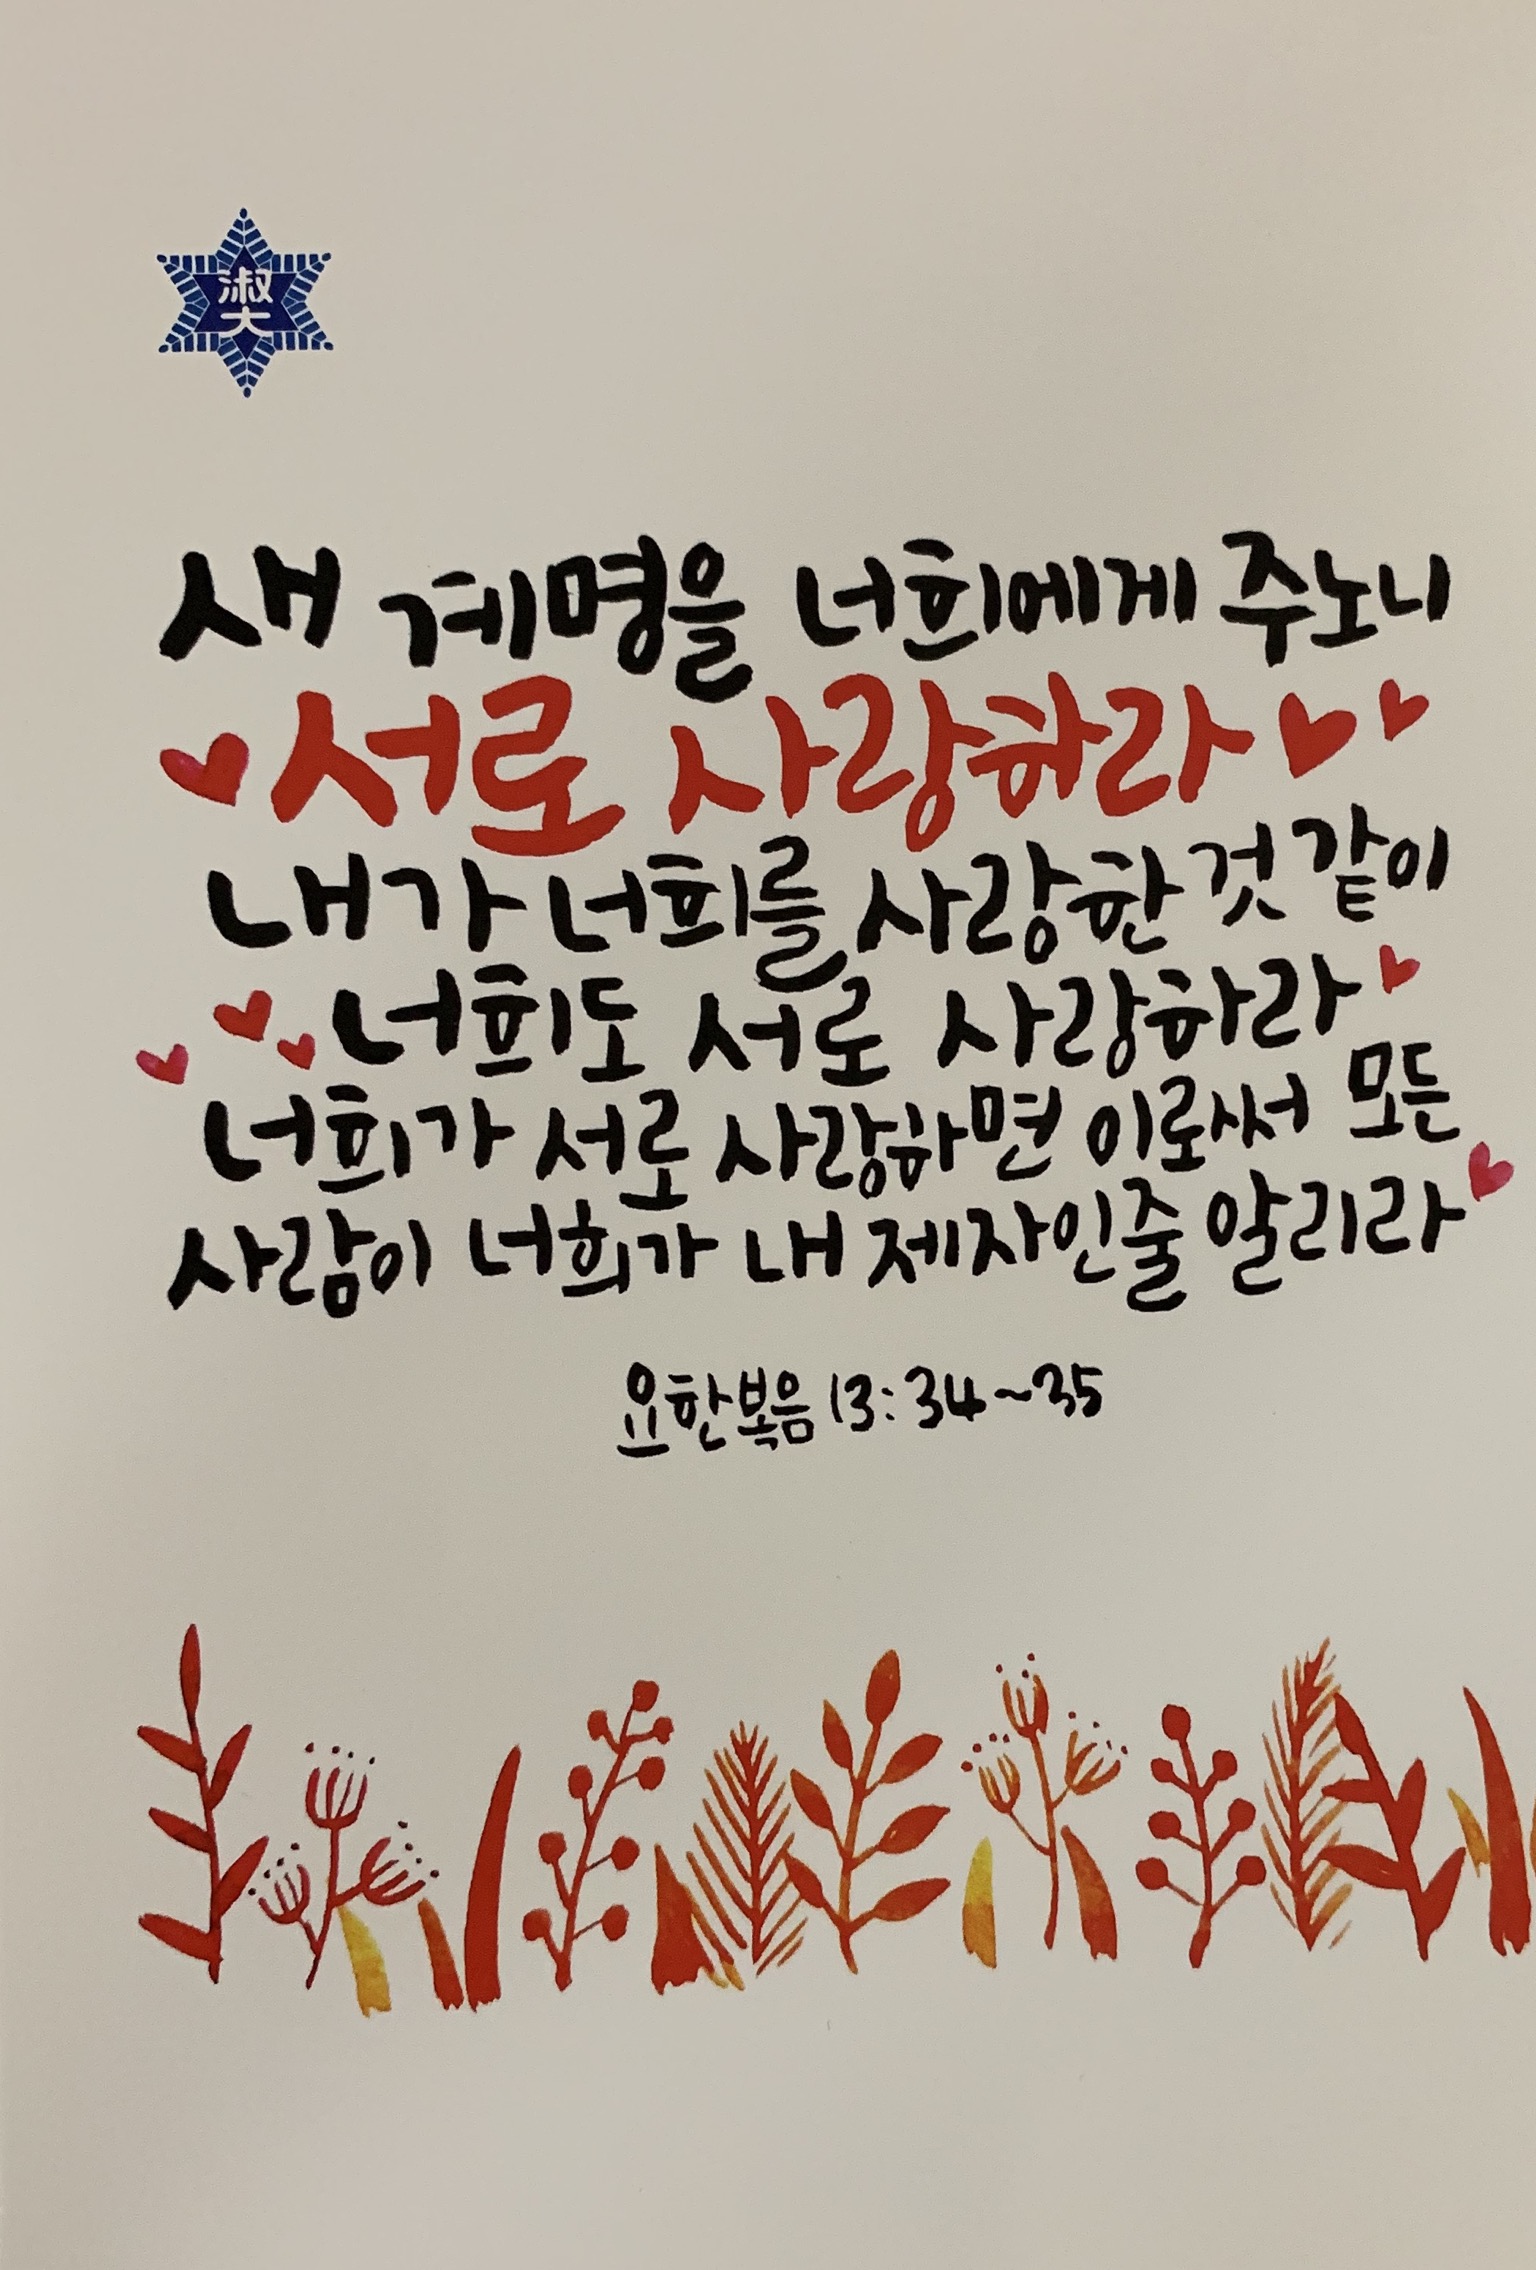 淑
大
새 계명을 너희에게 주노니
서로 사랑하라
내가 너희를 사랑한 것 같이
너희도 서로 사랑하라
너희가 서로 사랑하면 이로써 모든
사람이 너희가 내 제자인줄 알리라
요한복음 13:34~35